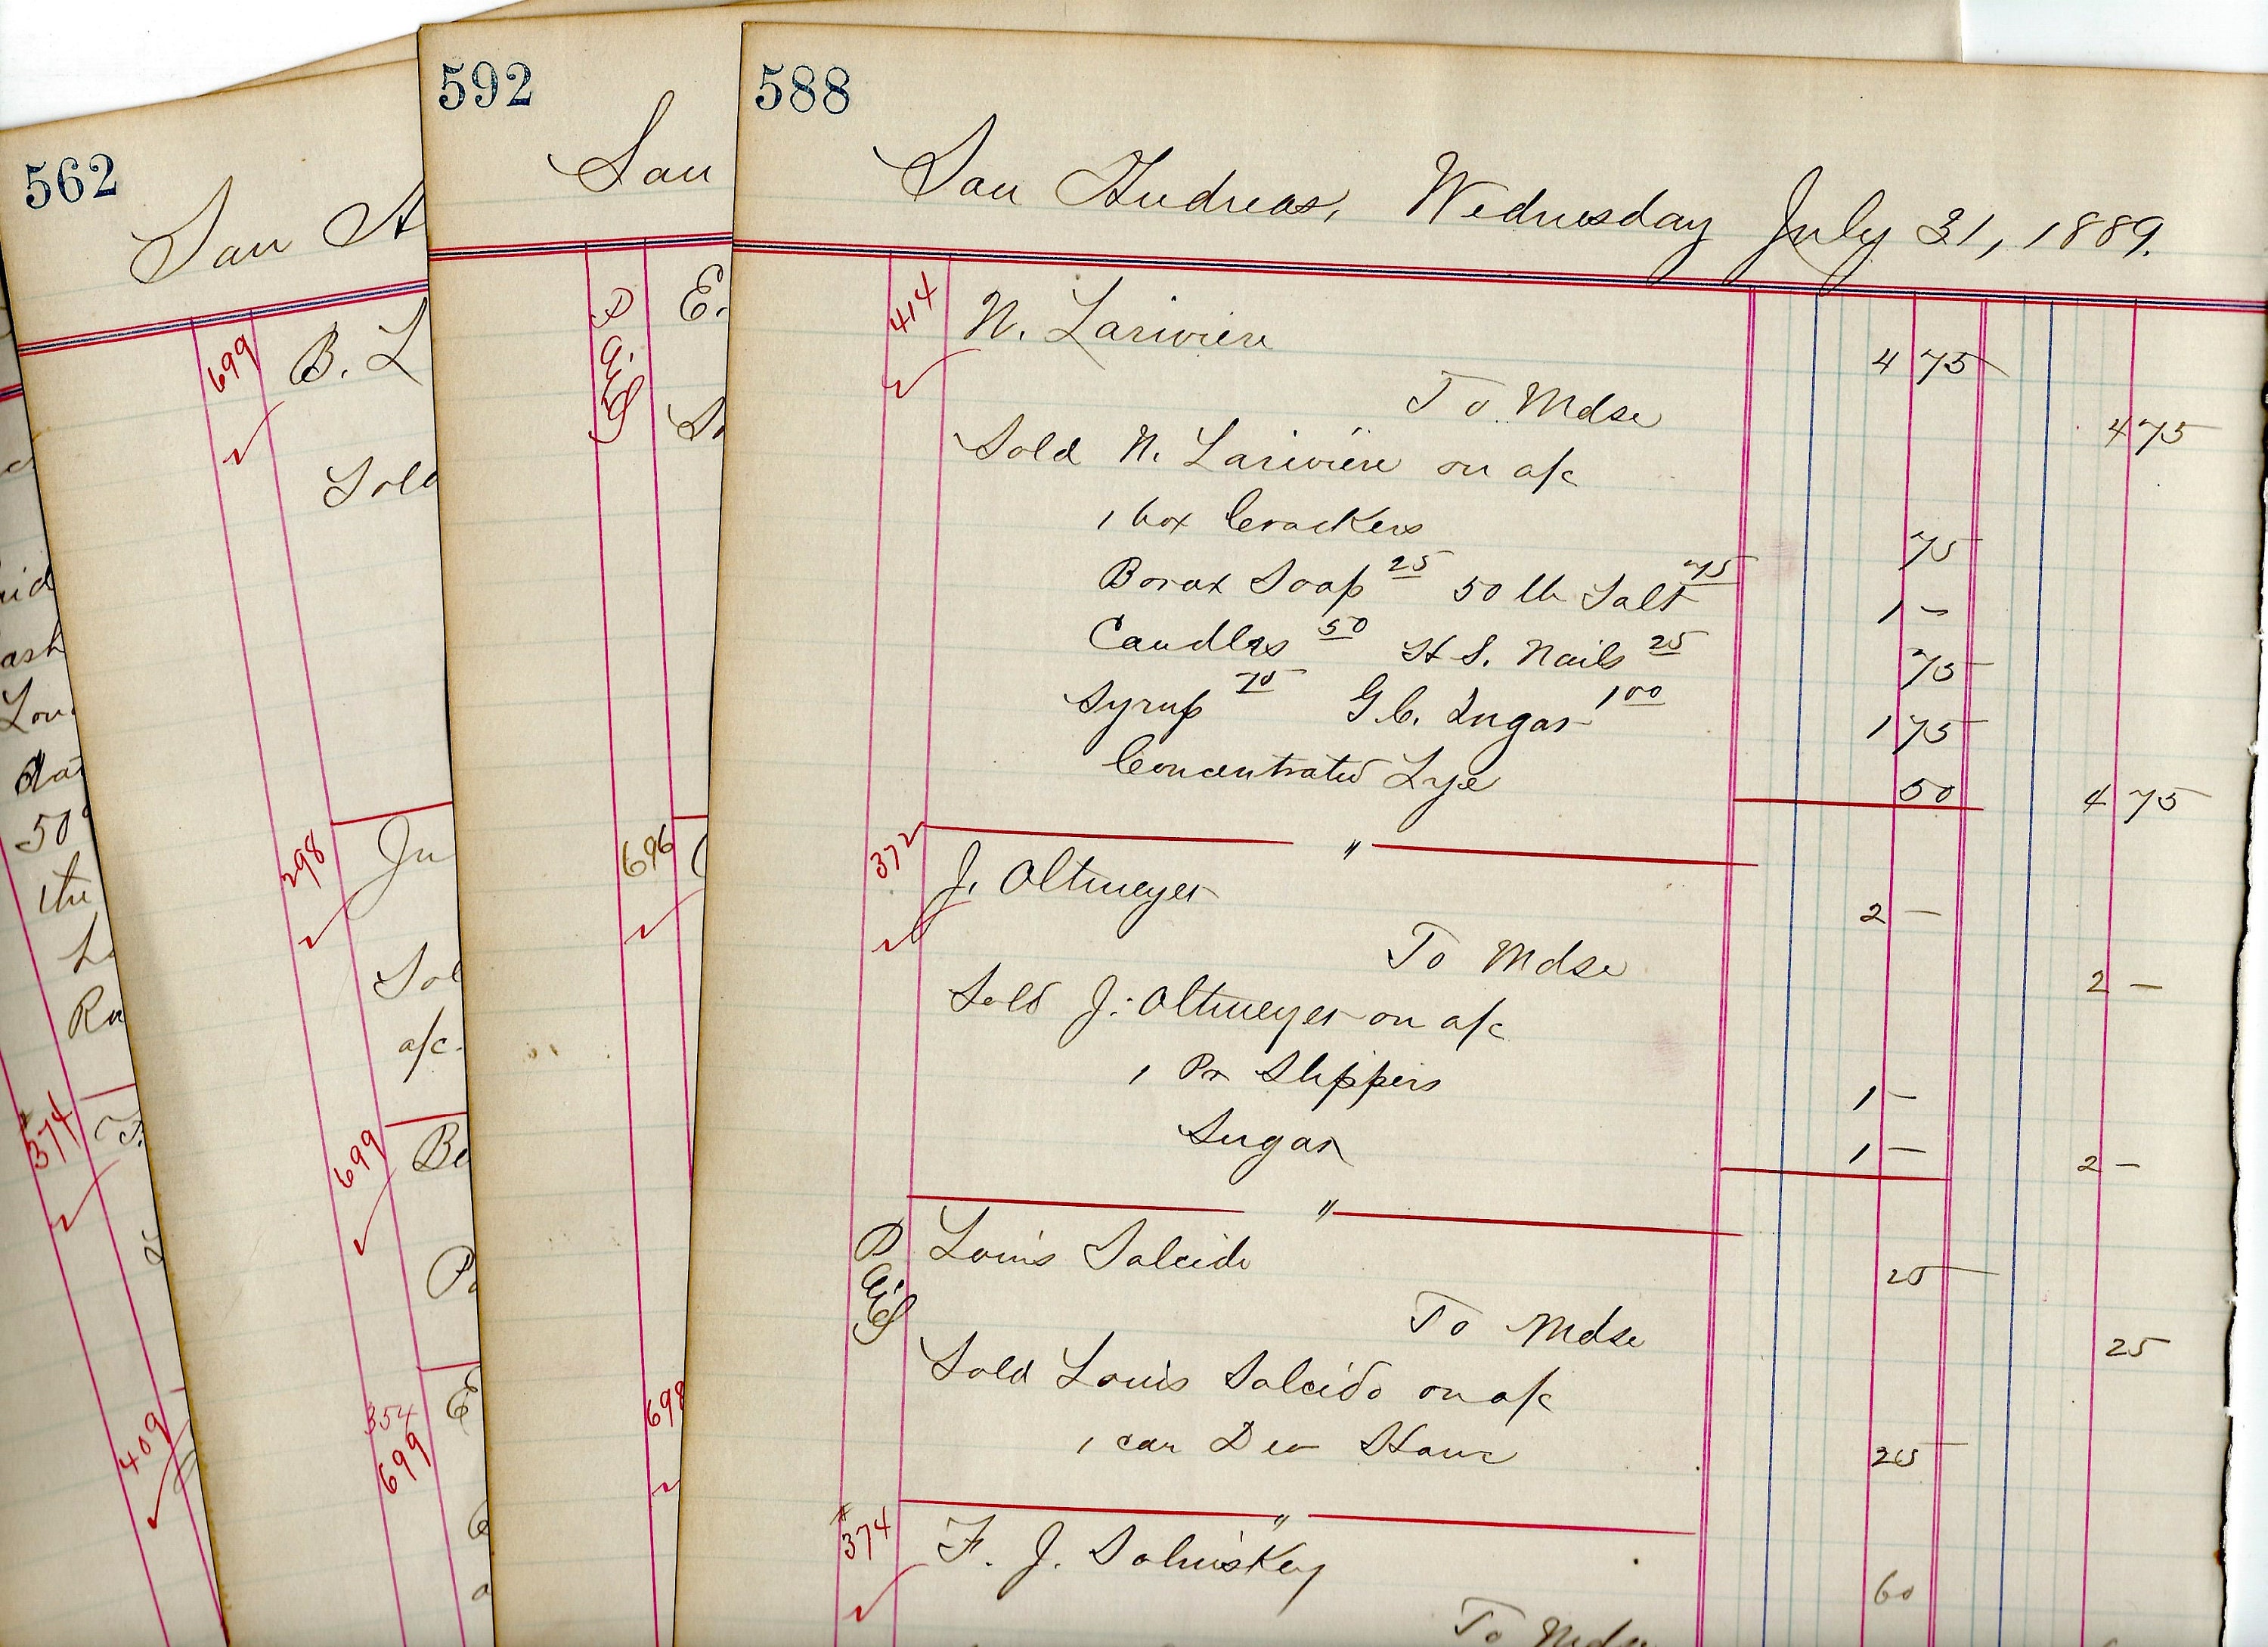 588
San Andreas, Wednesday July 31, 1889.
414 N. Lariviere 4 75
To Mdse 4 75
Sold N. Lariviere on a/c
1 box Crackers 75
Borax Soap 25 50 lb Salt 75 1 –
Candles 50 H S. Nails 25 75
Syrup 75 G.C. Sugar 1 00 1 75
Concentrated Lye 50 4 75
"
372 J. Oltmeyer 2 –
To Mdse 2 –
Sold J. Oltmeyer on a/c
1 Pr Slippers 1 –
Sugar 1 – 2 –
"
Paid Louis Salcido 25
To Mdse 25
Sold Louis Salcido on a/c
1 can Dev Ham 25
"
374 F. J. Solinskey 60
To Mdse
592
San
Paid E.
696
698
562
San A
699 B. L
Sold
298 Ju
Sol
a/c
699 Be
354 E
699
50
the
374
409